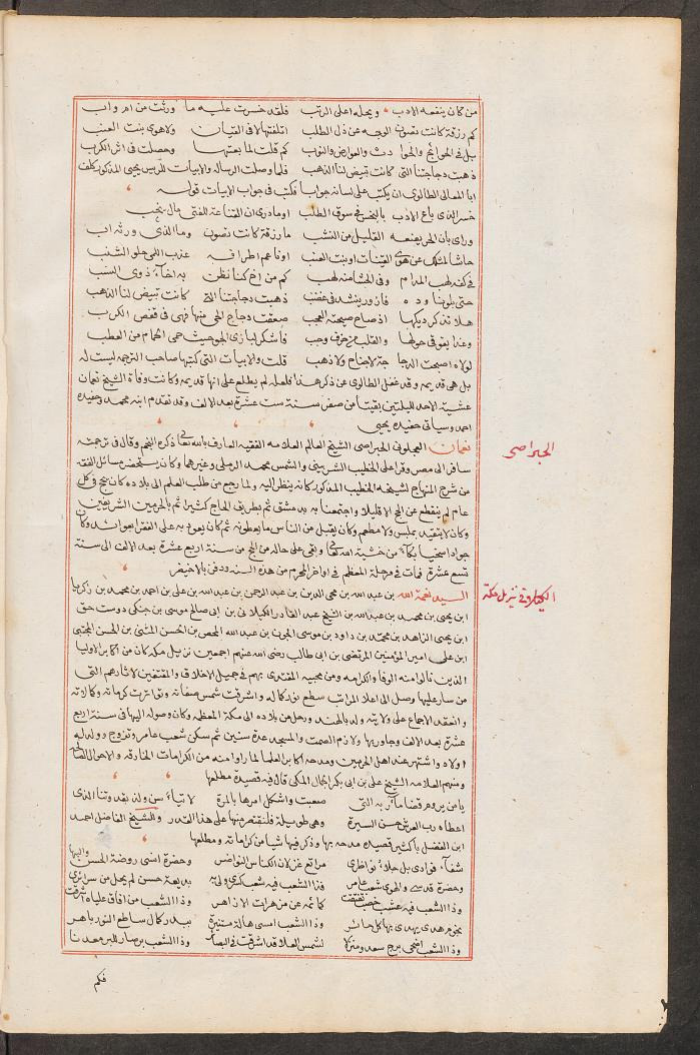 من كان ينفعه الادب ويحله اعلى الرتب فلقد خسرت عليه ما ورثت من ام واب
كم رزقة كانت تصون الوجه عن ذل الطلب اتلفتها لا في القيان ولا هوى بنت العنب
بل في الحوائج والحوادث والعوارض والنوب كم قلت لما بعتها وحصلت في اثر الكرب
ذهبت دجاجتنا التي كانت تبيض لنا الذهب فلما وصلت الرسالة والابيات للرئيس يحيى المذكور كلف
ابا المعالي الطالوي ان يكتب على لسانه جوابا فكتب في جواب الابيات قوله
خسر الذي باع الادب بالبخس في سوق الطلب اوما درى ان القناعة للفتى مال
وراى بان الحر يقنعه القليل من النشب ما رزقة كانت تصون وما الذي ورثه اب
حاشا لمثلك عن هوى القينات او بنت العنب اوناعم اطرافه عذب اللمى حلو الشنب
في كفه لهب المدام وفي الحشا منه لهب كم من اخ كنا نظن به اخاء ذوي النسب
حتى بلونا وده فازور ينشد في غضب ذهبت دجاجتنا التي كانت تبيض لنا الذهب
هلا تذكر ديكها اذ صاح صيحته العجب صعقت دجاج الحي منها فهي في قفص الكرب
وغدا يقوقي حولها والقلب من خوف وجب فاشكر لبازي الجو حيث حمى الحمام من العطب
لولاه اصبحت الدجاجة لا جناح ولا ذهب قلت والابيات التي كتبها صاحب الترجمة ليست له
بل هي قديمة وقد غفل الطالوي عن ذكر هذا فلعله لم يطلع على انها قديمة وكانت وفاة الشيخ نعمان
عشية الاحد لليلتين بقيتا من صفر سنة ست عشرة بعد الالف وقد تقدم ابنه محمد وحفيده
احمد وسياتي حفيده يحيى
نعمان العجلوني الحبراصي الشيخ العالم العلامه الفقيه العارف بالله تعالى ذكره النجم وقال في ترجمته
سافر الى مصر وقرا على الخطيب الشربيني والشمس محمد الرملي وغيرهما وكان يستحضر مسائل الفقه
من شرح المنهاج لشيخه الخطيب المذكور كانه ينظر اليه ولما رجع من طلب العلم الى بلاده كان يحج في كل
عام لم ينقطع عن الحج الا قليلا واجتمعنا به بدمشق ثم بطريق الحاج كثيرا ثم بالحرمين الشريفين
وكان لا يتقيد بملبس ولا مطعم وكان يقبل من الناس ما يعطونه ثم كان يعود به على الفقراء وكان
جوادا سخيا بكاء من خشية الله تعالى وبقي على حاله من الحج من سنة اربع عشرة بعد الالف الى سنة
تسع عشرة فمات في مرحلة المعظم في اواخر المحرم من هذه السنة ودفن بالاخيضر
السيد نعمة الله بن عبد الله بن محي الدين بن عبد الله بن عبد الرحمن بن عبد الله بن علي بن احمد بن محمد بن زكريا
ابن يحيى بن محمد بن عبد الله بن الشيخ عبد القادر الكيلاني بن ابي صالح موسى بن جنكي دوست حق
ابن يحيى الزاهد بن محمد بن داود بن موسى الجون بن عبد الله المحض بن الحسن المثنى بن الحسن المجتبى
ابن علي امير المؤمنين المرتضى بن ابي طالب رضي الله عنهم اجمعين نزيل مكه كان من اكابر الاوليا
الذين نالوا منه الوفا والكرامه ومن محبيه المقتدى بهم في جميل الاخلاق والمقتفين لاثارهم التي
من سار عليها وصل الى اعلا المراتب سطع نور كماله واشرقت شمس صفاته وتواترت كراماته وكالاته
وانعقد الاجماع على ولايته ولد بالهند ورحل من بلاده الى مكة المعظمه وكان وصوله اليها في سنة اربع
عشرة بعد الالف وجاور بها ولازم الصمت والمسجد عدة سنين ثم سكن شعب عامر وتزوج وولد له
اولاد واشتهر عند اهل الحرمين ومدحه اكابر العلما لما راوا منه من الكرامات الخارقه والاحوال
ومنهم العلامه الشيخ علي بن ابي بكر الجمال المكي قال فيه قصيدة مطلعها
يا من يروم قضا مآربه التي صعبت واشكل امرها بالمرة لا تيأسن ولذ بقدوتنا الذي
اعطاه رب العرش حسن السيرة وهي طويلة فلنقتصر منها على هذا القدر وللشيخ الفاضل احمد
ابن الفضل باكثير قصيده مدحه بها وذكر فيها شيا من كراماته ومطلعها
شفآء فؤادي بل جلاء نواظري مراتع غزلان الكناس النواضر وحضرة انسي روضة الحسن والبها
وحضرة قدسي والهوى شعب عامر فذا الشعب فيه شعب فكري ولبه بديعة حسن لم يحل من سرائري
وذا الشعب فيه عشب كمائمه عن مزهرات الازاهر وذا الشعب من افاق علياه اشرقت
نجوم هدى يهدي بها كل حائر وذا الشعب امسى هالة مستنيرة ببدر كمال ساطع النور باهر
وذا الشعب اضحى برج سعد ومنزلا لشمس العلا قد اشرقت في البصائر وذا الشعب بر صار للبر معدنا
فكم
الحبراصي
الكيلاني نزيل مكة